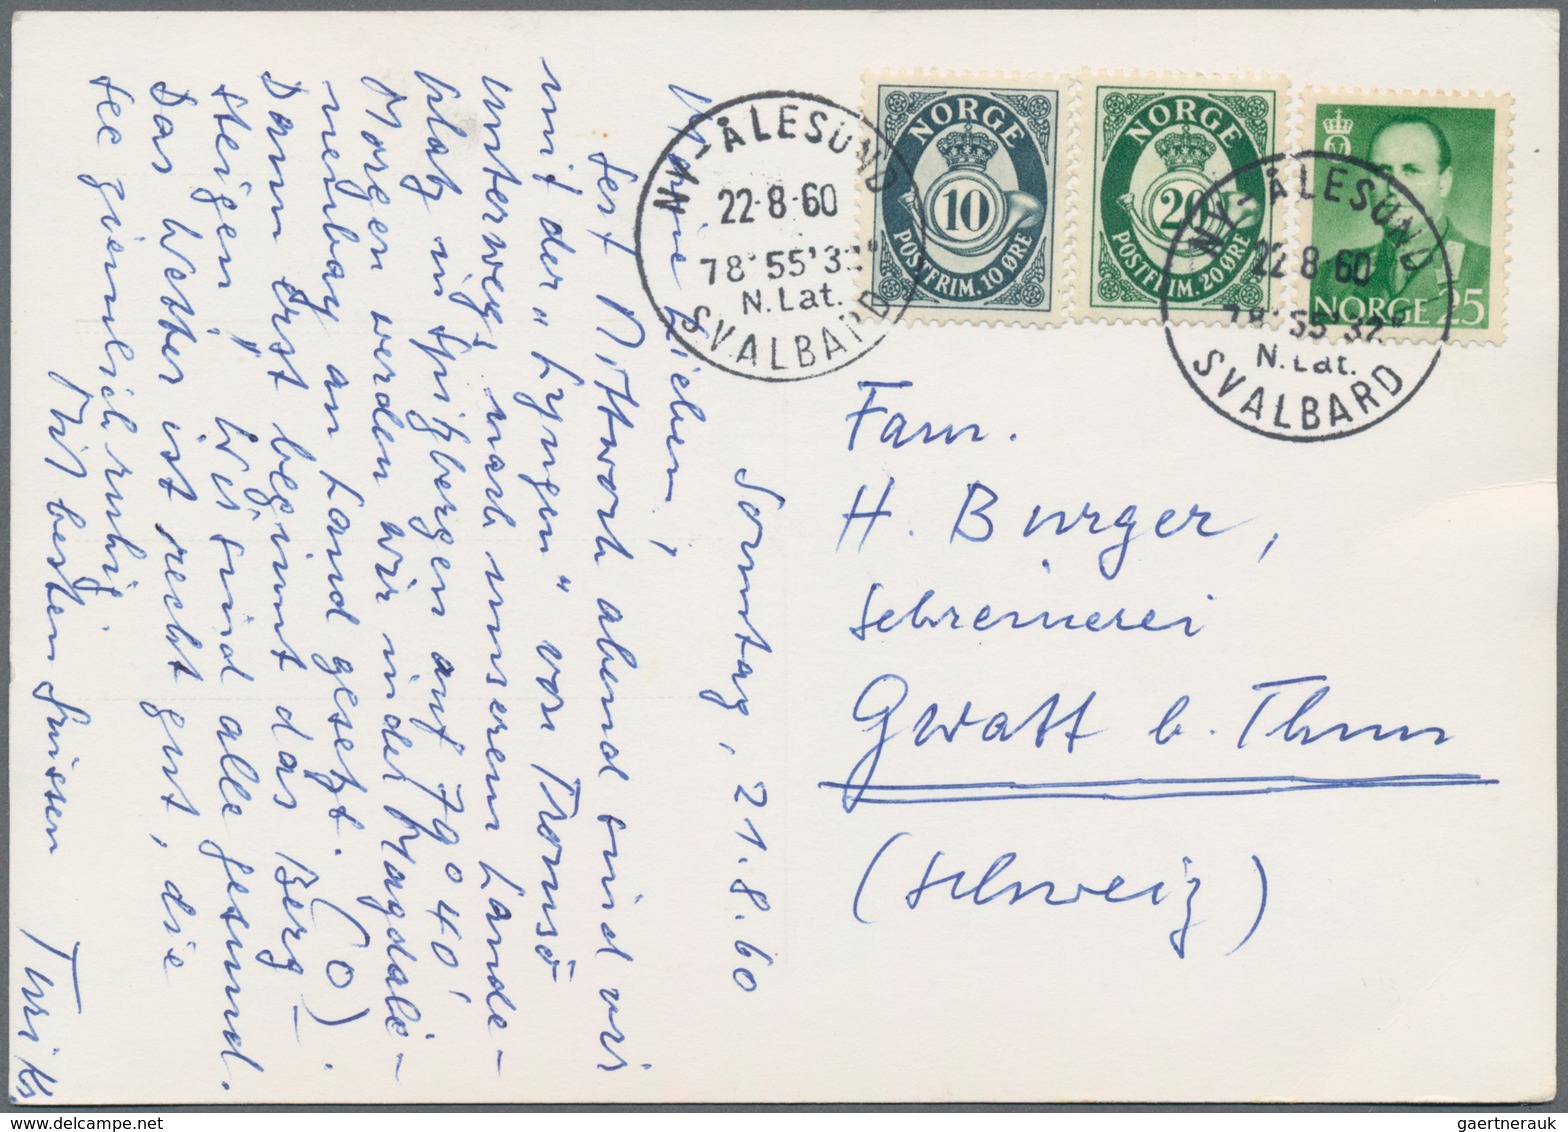 Sonntag, 21.8.60
Meine Lieben,
seit Mittwoch abend sind wir
mit der "Lyngen" von Tromsö
unterwegs nach unserem Lande-
platz in Spitzbergen auf 79°40'
Morgen werden wir in der Magdale-
nenbay an Land gesetzt. (O)
Dann erst beginnt das Berg-
steigen. Wir sind alle gesund.
Das Wetter ist recht gut, die
See ziemlich ruhig.
Mit besten Grüssen
NY-ÅLESUND
22-8-60
78°55'32"
N. Lat.
SVALBARD
NORGE
10
POSTFRIM. 10 ØRE
NORGE
20
POSTFRIM. 20 ØRE
NORGE 25
NY-ÅLESUND
22-8-60
78°55'32"
N. Lat.
SVALBARD
Fam.
H. Burger,
Schreinerei
Gwatt b. Thun
(Schweiz)
gaertnerauk @ delcampe.net